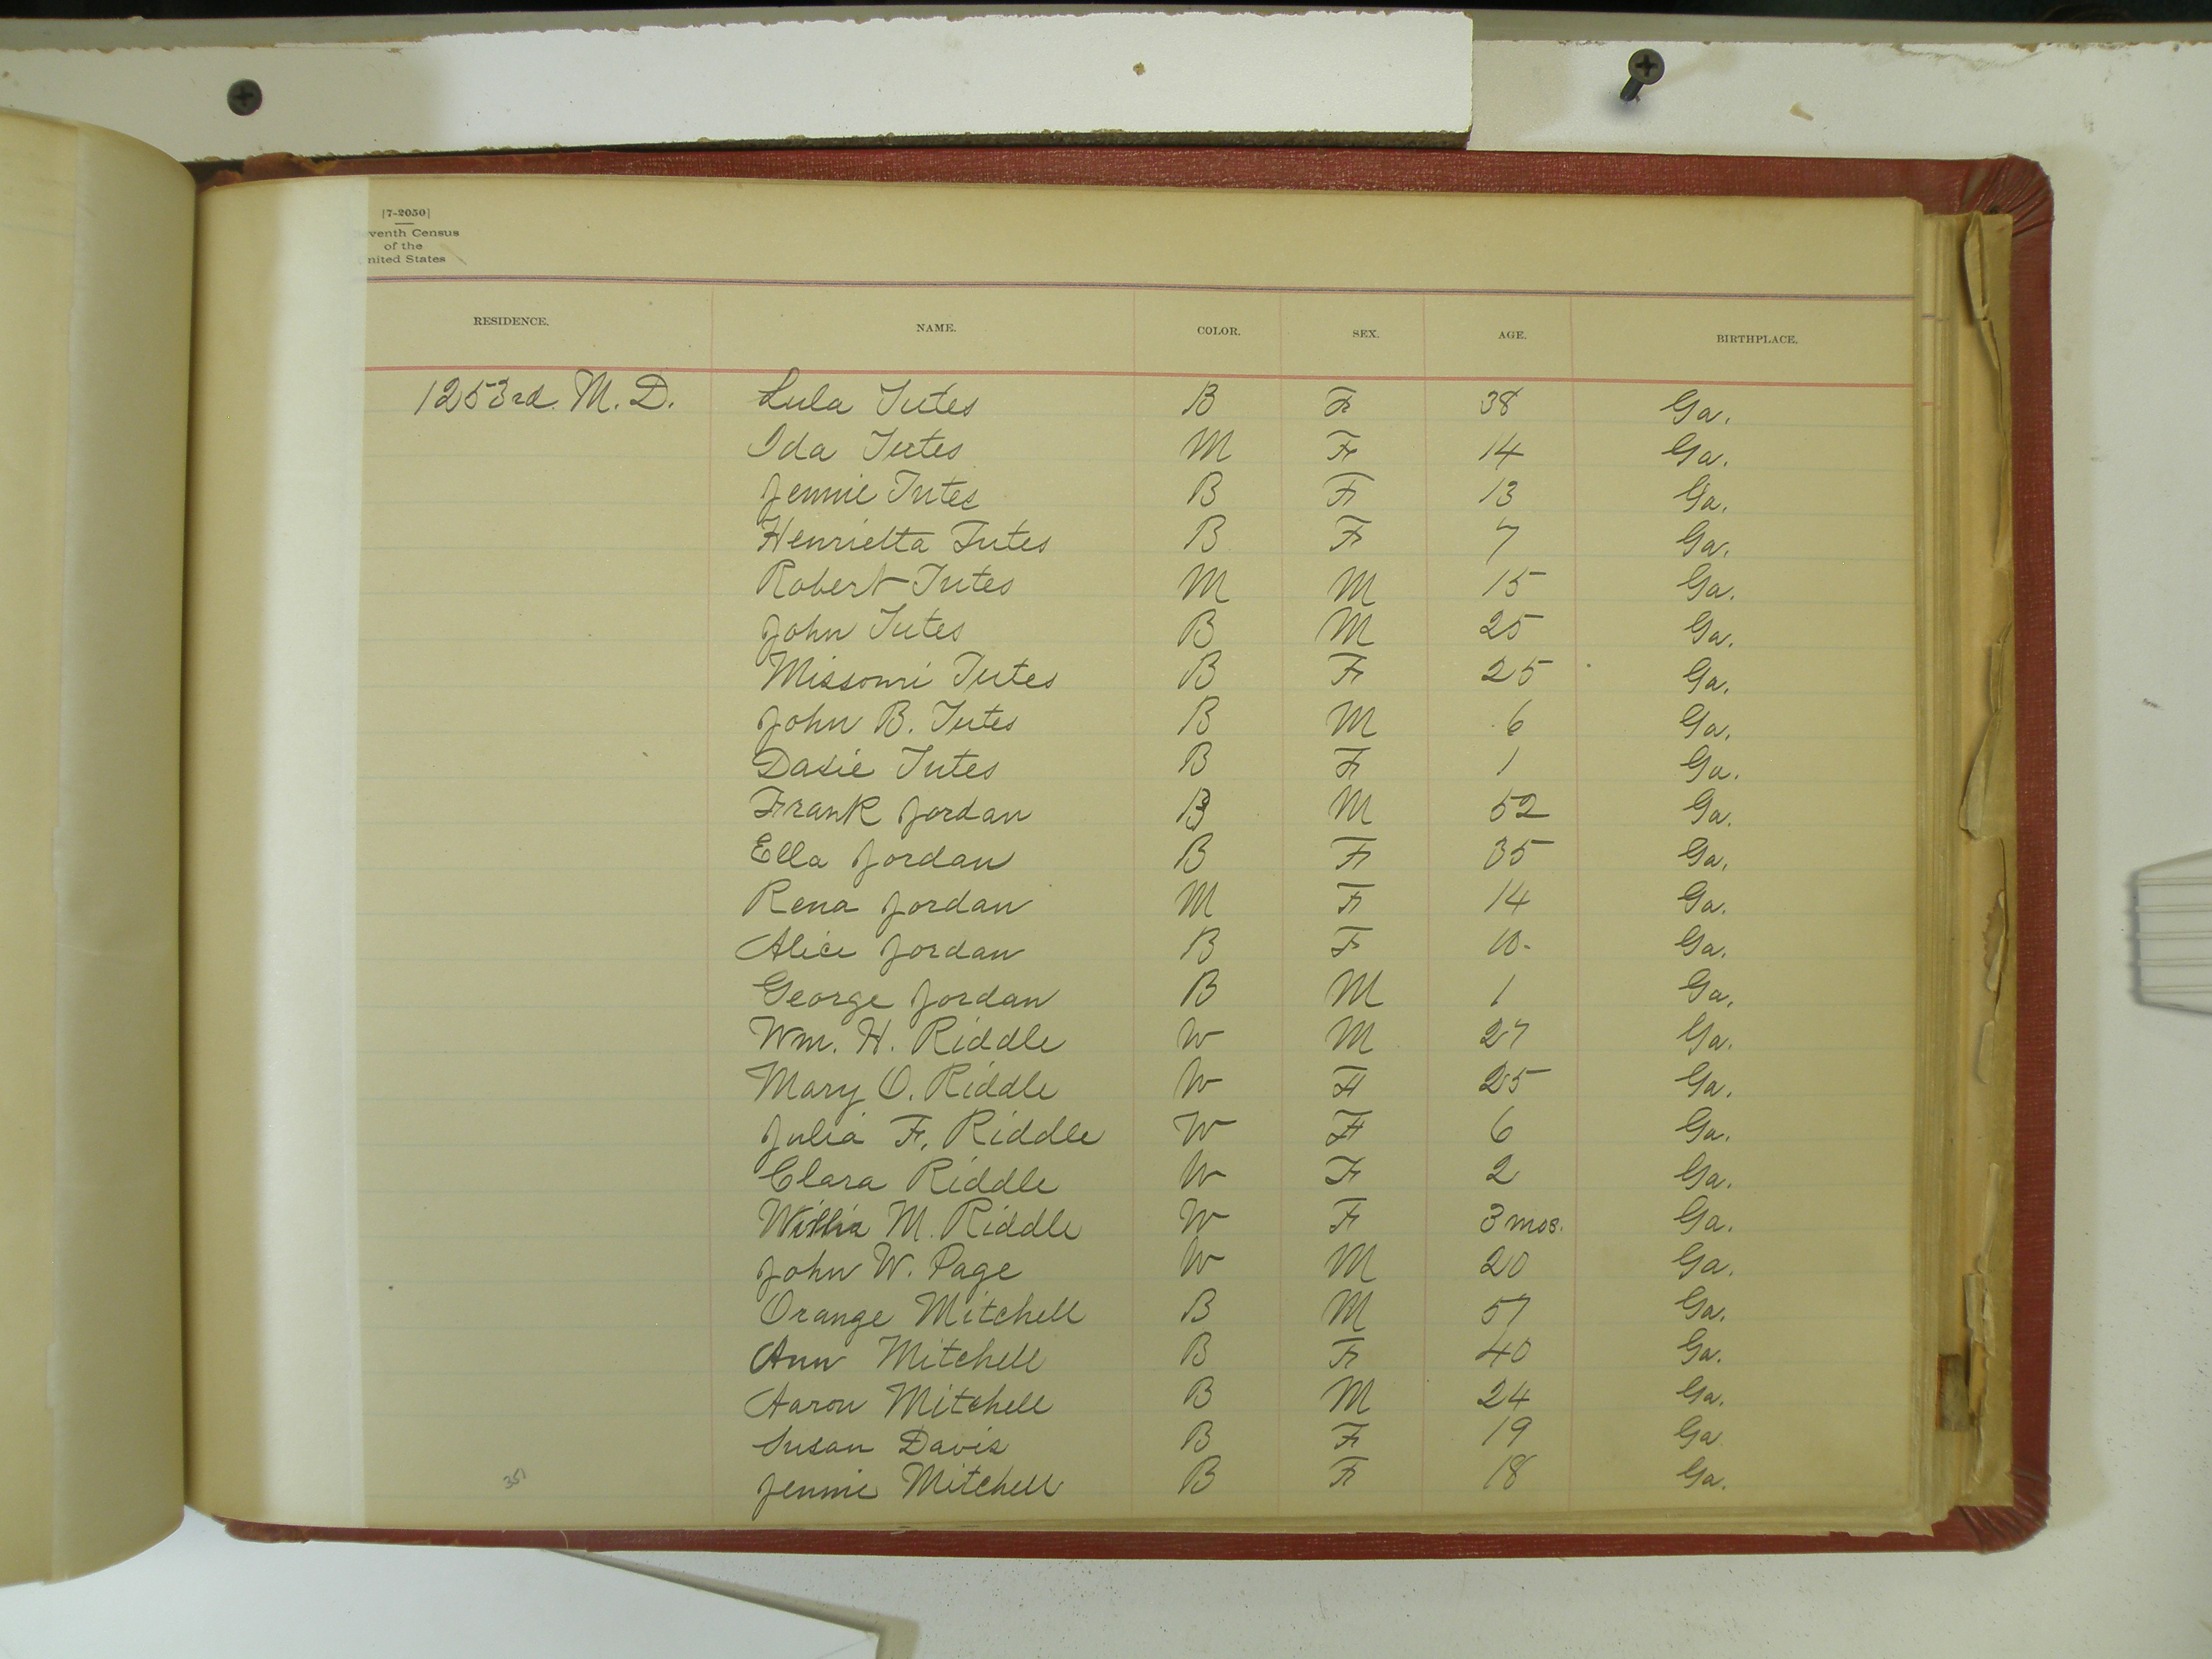 [7-2050]
venth Census
of the
nited States
RESIDENCE. NAME. COLOR. SEX. AGE. BIRTHPLACE.
1253rd. M. D. Lula Tutes B F 38 Ga.
Ida Tutes M F 14 Ga.
Jennie Tutes B F 13 Ga.
Henrietta Tutes B F 7 Ga.
Robert Tutes M M 15 Ga.
John Tutes B M 25 Ga.
Missouri Tutes B F 25 Ga.
John B. Tutes B M 6 Ga.
Dasie Tutes B F 1 Ga.
Frank Jordan B M 52 Ga.
Ella Jordan B F 35 Ga.
Rena Jordan M F 14 Ga.
Alice Jordan B F 10 Ga.
George Jordan B M 1 Ga.
Wm. H. Riddle W M 27 Ga.
Mary O. Riddle W F 25 Ga.
Julia F. Riddle W F 6 Ga.
Clara Riddle W F 2 Ga.
M. Riddle W F 3 mos. Ga.
John W. Page W M 20 Ga.
Orange Mitchell B M 57 Ga.
Ann Mitchell B F 40 Ga.
Aaron Mitchell B M 24 Ga.
Susan Davis B F 19 Ga
Jennie Mitchell B F 18 Ga.